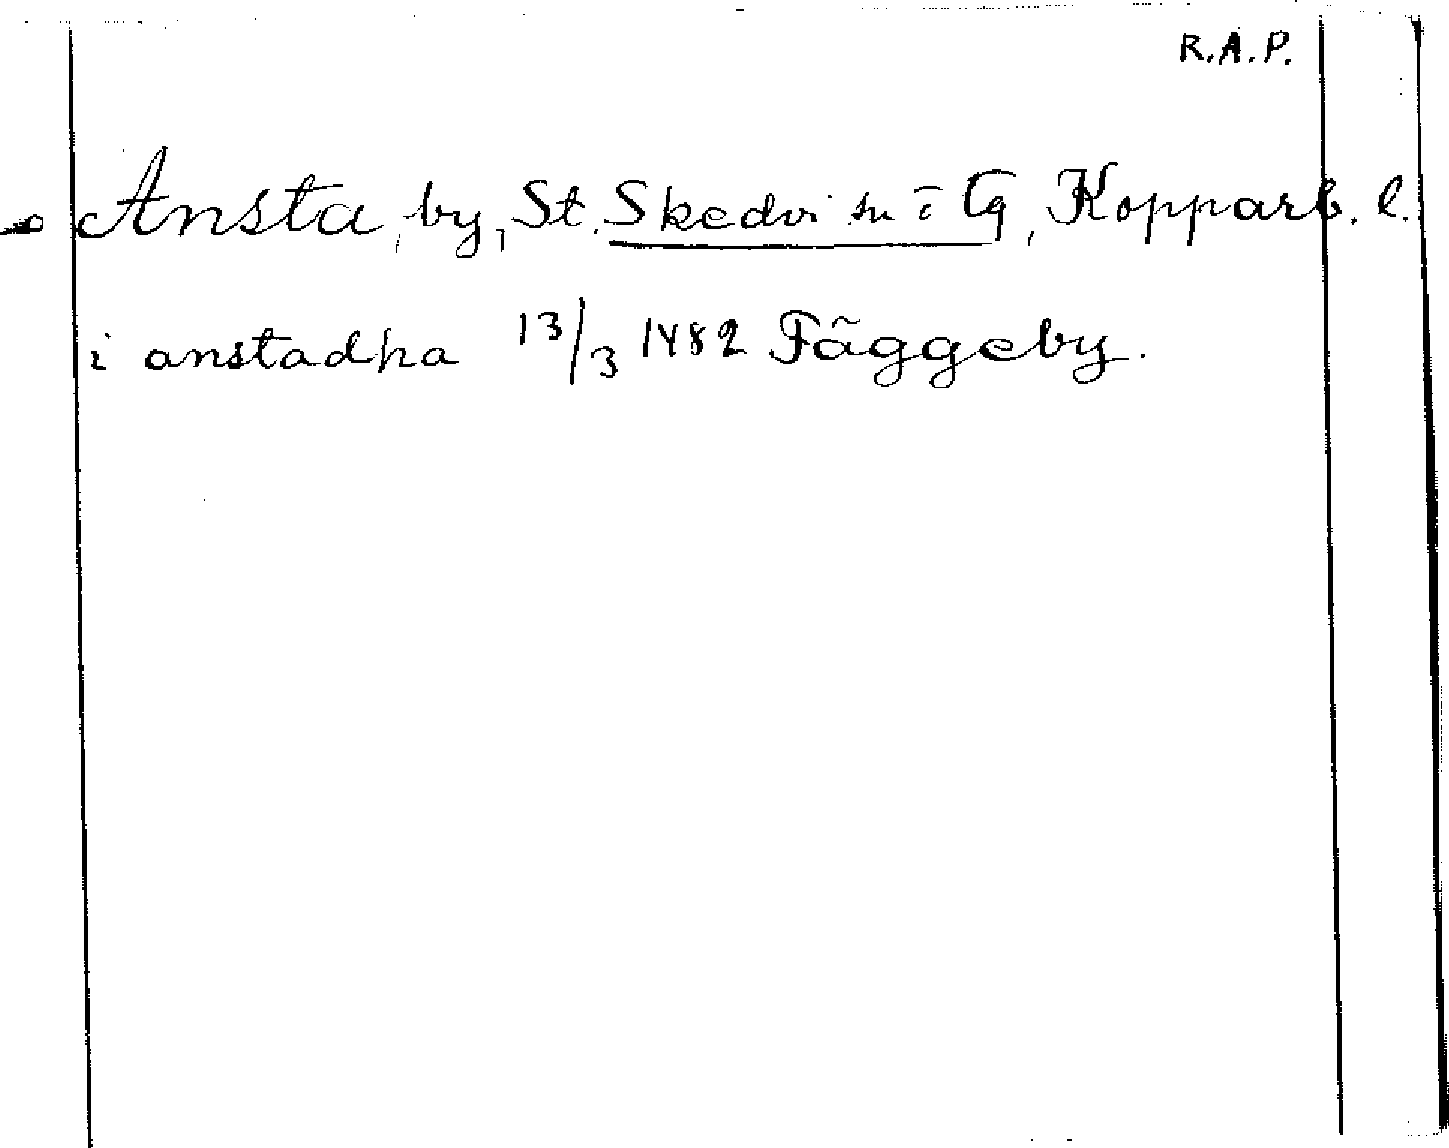 R.A.P.
Ansta, by, St. Skedvi sn i G, Kopparb. l.
i anstadha 13/3 1482 Fäggeby.